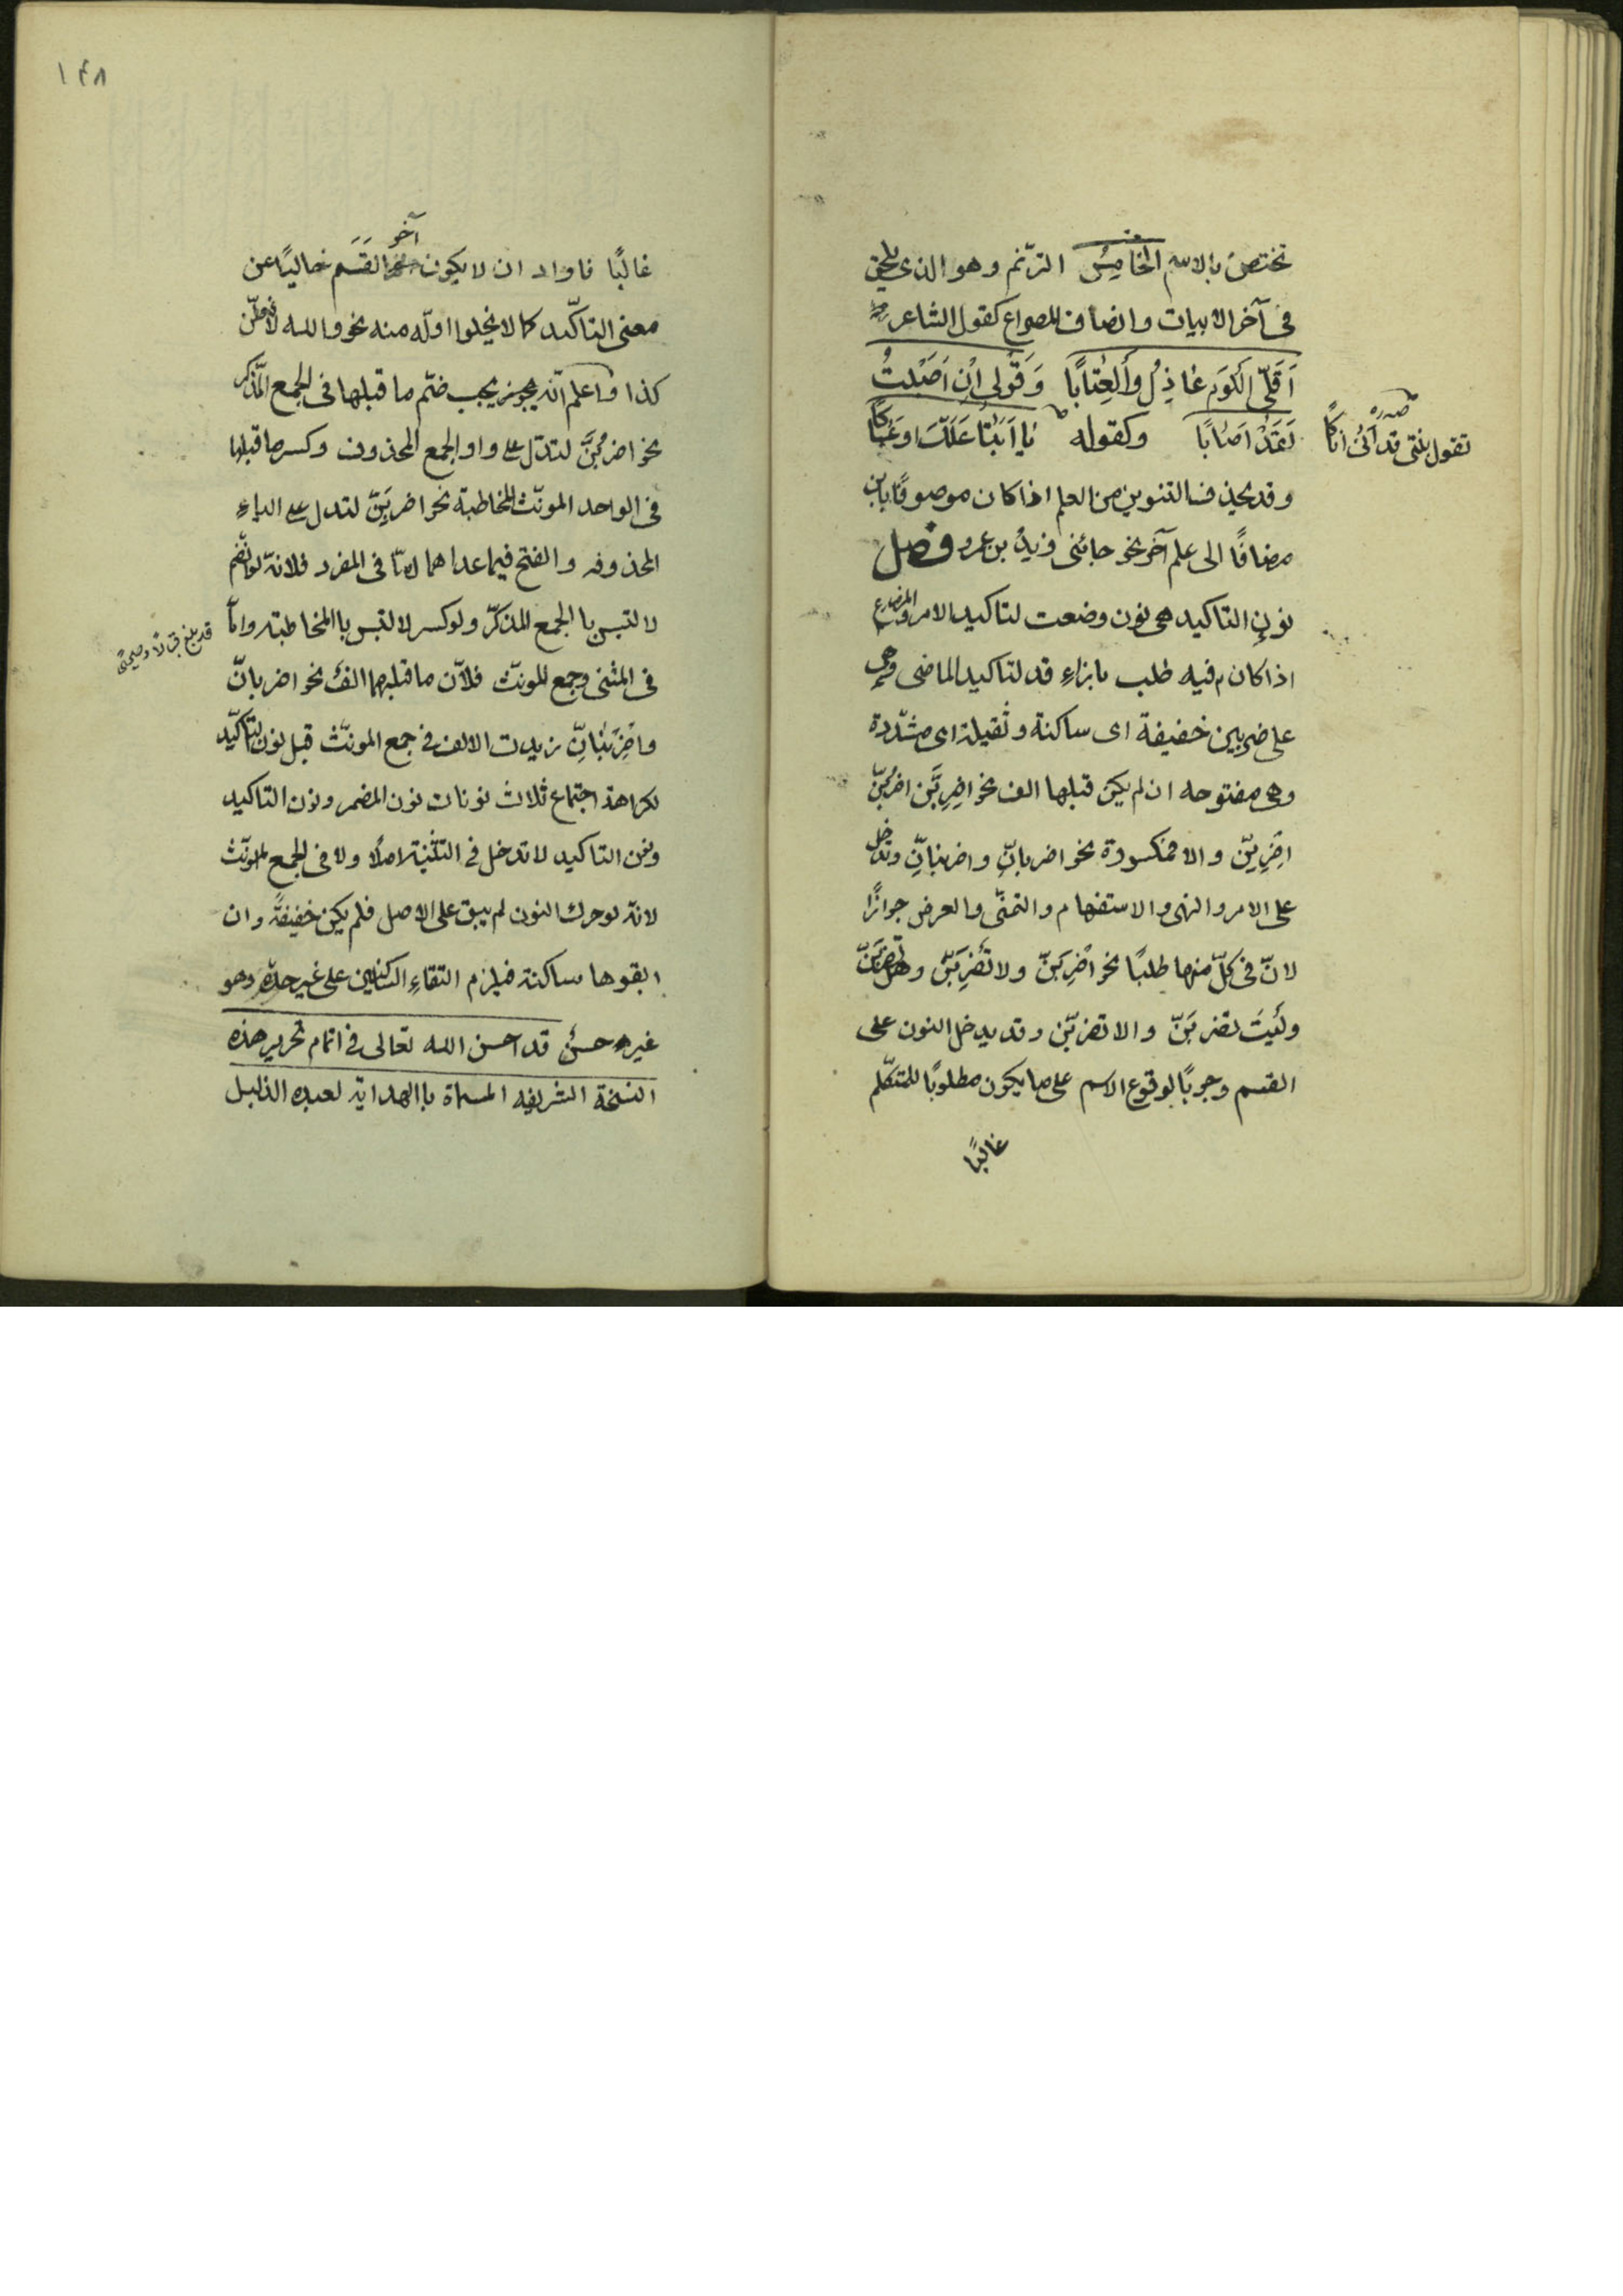 تختصّ بالاسم الخامِسُ الترّنم وهو الذى يلحق
فى آخر الابيات وانصاف المصراع كقول الشاعر
اَقَلّى اللَّوَم عٰاذِلُ وَاَلعِتٰابًا وَقَوُلى اِنْ اَصَبْتُ
لَقَدْ اَصٰابًا وكقوله يٰا اَبَتٰا عَلَّكَ اوَعَسٰاكًا
تقول بنتى قد اَنىٰ اناكًا
صدره
وقد يحذف التنوين من العلم اذا كان موصوفًا بابن
مضافًا الى علم آخر نحو جائنى زيدُ بن عمرو فصل
نون التاكيد هى نون وضعت لتاكيد الامر والمضارع
اذا كان فيه طلب بازاءِ قد لتاكيد الماضى وهى
على ضربين خفيفة اى ساكنة وثقيلة اى مشدّدة
وهى مفتوحه ان لم يكن قبلها الف نحو اضرِبَّن اضربُنّ
اضِرِبِنّ والا فمكسورة نحو اضربانِّ واضربنانِّ وتدخل
على الامر والنهى والاستفهام والتمنّى والعرض جوازًا
لانّ فى كلّ منها طلبًا نحو اضْرِبَنّ ولا تَضْرِبَنّ وهل تضربَنّ
ولَيتَ تضربَنّ والا تضربّن وقد يدخل النون على
القسم وجوبًا لوقوع الاسم على ما يكون مطلوبًا للمتكلّم
غالبًا
١٤٨
غالبًا فاواد ان لا يكون آخر القَسَم خاليًا عن
معنى التاكّيد كما لا يخلوا اوله منه نحو والله لافعلّن
كذا واعلم انّه يجب ضّم ما قبلها فى الجمع المّذكر
نحو اضربُنَّ لتدّل على واو الجمع المحذوف وكسر ما قبلها
فى الواحد المونّث المخاطبة نحو اضربِنّ لتدل على الياءِ
المحذوفه والفتح فيما عداهما امّا فى المفرد فلانّه لو انضم
لالتبس با الجمع المذكّر ولو كسر لالتبس با المخاطبة وامّا
فى المثنى وجمع المونث فلاّن ما قبلهما الفُ نحو اضربانّ
واضْرِبَنٰانِّ زيدت الالف فى جمع المونّث قبل نون التاكّيد
لكراهة اجتماع ثلاث نونات نون المضمر ونون التاكيد
ونون التاكيد لا تدخل فى التثنية اصلًا ولا فى الجمع المونّث
لانّه لو حرك النون لم يبق على الاصل فلم يكن خفيفةً وان
ابقوها ساكنة فيلزم التقاءِ الساكنين على غير حدّه وهو
غير حسنُ قد احسن الله تعالى فى اتمام تحرير هذه
النسخة الشريفه المسماة با الهداية لعبده الذليل